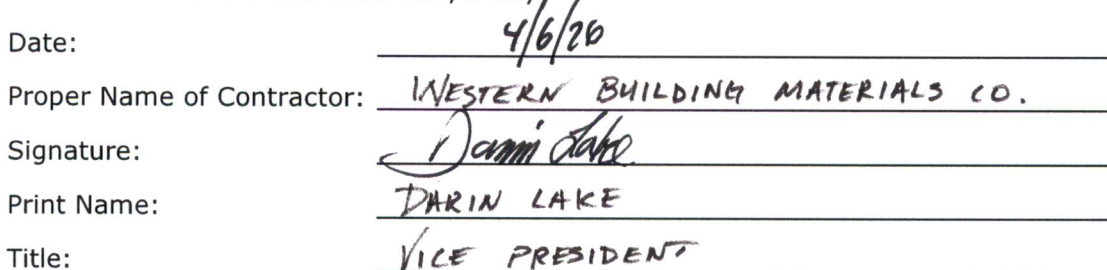 Date: 4/6/26
Proper Name of Contractor: WESTERN BUILDING MATERIALS CO.
Signature: Darin Lake
Print Name: DARIN LAKE
Title: VICE PRESIDENT